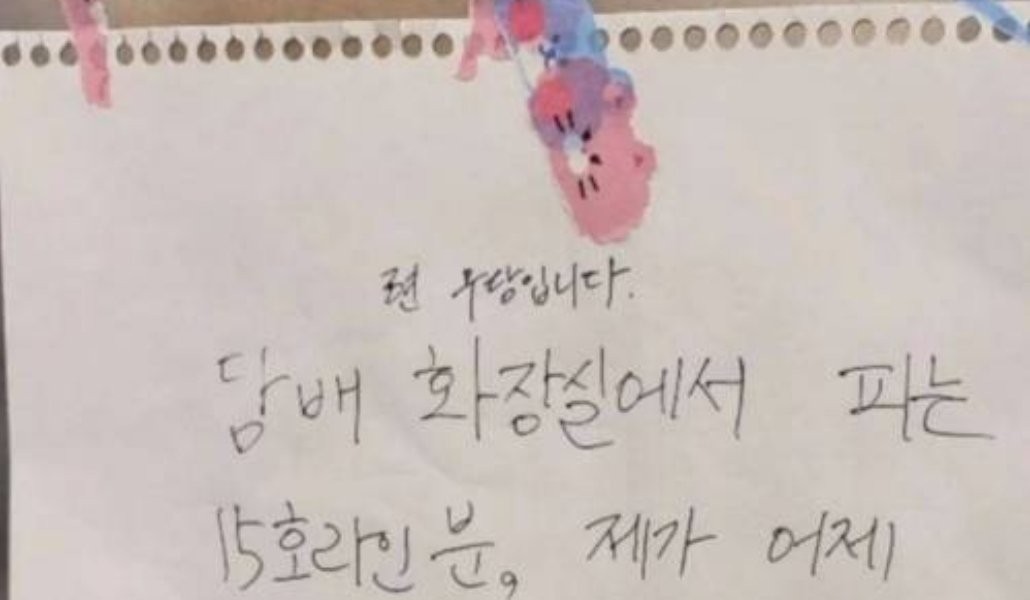 무당입니다.
담배 화장실에서 피는
15호라인분, 제가 어제